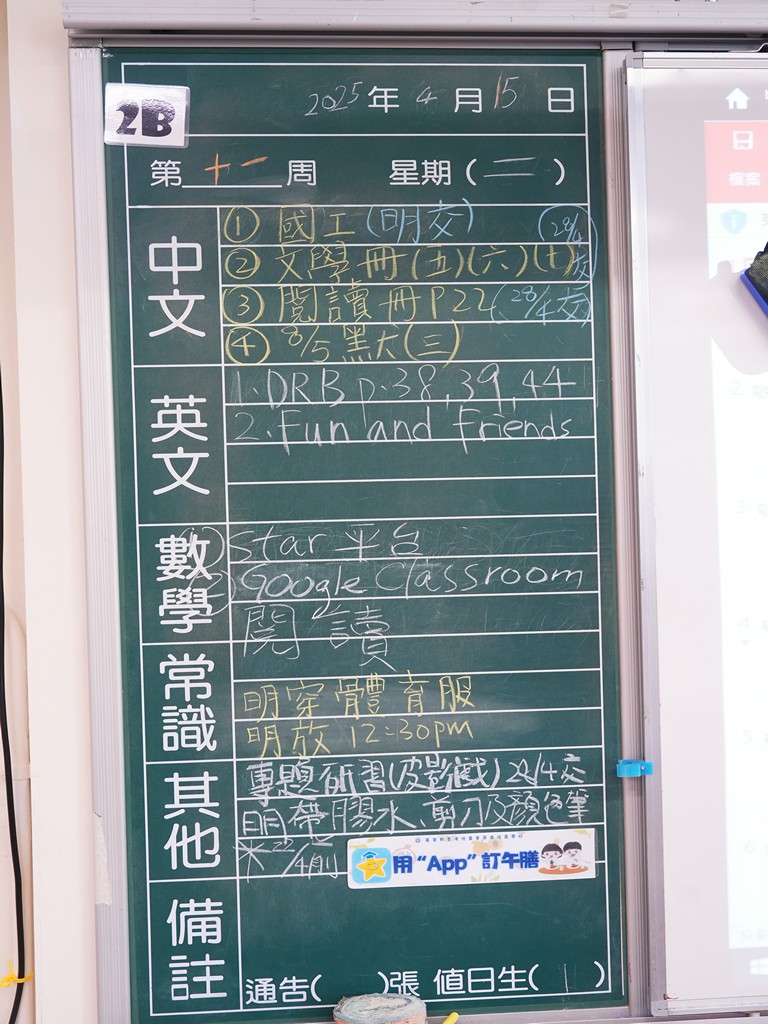 2B
2025年4月15日
第十一周 星期(二)
中文
① 國工(明交)
② 文學冊(五)(六)(十) (28/4交)
③ 閱讀冊P22(28/4交)
④ 8/5 黑大(三)
英文
1. DRB p.38,39,44
2. Fun and Friends
數學
(1) Star 平台
(2) Google Classroom
閱讀
常識
明穿體育服
明放12:30pm
其他
專題研習(皮影戲)28/4交
明帶膠水、剪刀及顏色筆
*22/4前
用“App”訂午膳
備註
通告( )張 值日生(1)
檔案